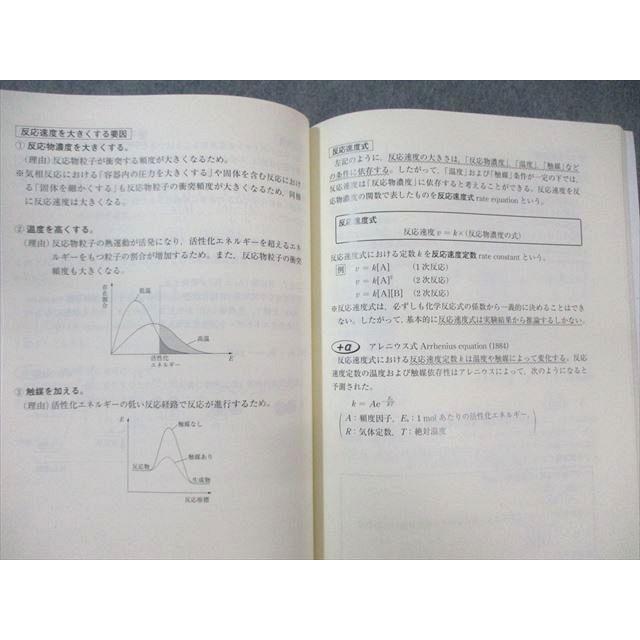 反応速度を大きくする要因
① 反応物濃度を大きくする。
(理由) 反応物粒子が衝突する頻度が大きくなるため。
※気相反応における「容器内の圧力を大きくする」や固体を含む反応におけ
る「固体を細かくする」も反応物粒子の衝突頻度が大きくなるため、同様
に反応速度は大きくなる。
② 温度を高くする。
(理由) 反応物粒子の熱運動が活発になり、活性化エネルギーを超えるエネ
ルギーをもつ粒子の割合が増加するため。また、反応物粒子の衝突
頻度も大きくなる。
存在割合
低温
高温
活性化
エネルギー
E
③ 触媒を加える。
(理由) 活性化エネルギーの低い反応経路で反応が進行するため。
E
触媒なし
触媒あり
反応物
生成物
反応座標
反応速度式
左記のように、反応速度の大きさは、「反応物濃度」、「温度」、「触媒」など
の条件に依存する。したがって、「温度」および「触媒」条件が一定の下では、
反応速度は「反応物濃度」に依存すると考えることができる。反応速度を反
応物濃度の関数で表したものを反応速度式 rate equation という。
反応速度式
反応速度 v = k×(反応物濃度の式)
反応速度式における定数 k を反応速度定数 rate constant という。
例 v = k[A] (1次反応)
v = k[A]² (2次反応)
v = k[A][B] (2次反応)
※反応速度式は、必ずしも化学反応式の係数から一義的に決めることはでき
ない。したがって、基本的に反応速度式は実験結果から推論するしかない。
+α アレニウス式 Arrhenius equation (1884)
反応速度式における反応速度定数 k は温度や触媒によって変化する。反応
速度定数の温度および触媒依存性はアレニウスによって、次のようになると
予測された。
k = Ae
A：頻度因子，E：1 mol あたりの活性化エネルギー，
R：気体定数，T：絶対温度